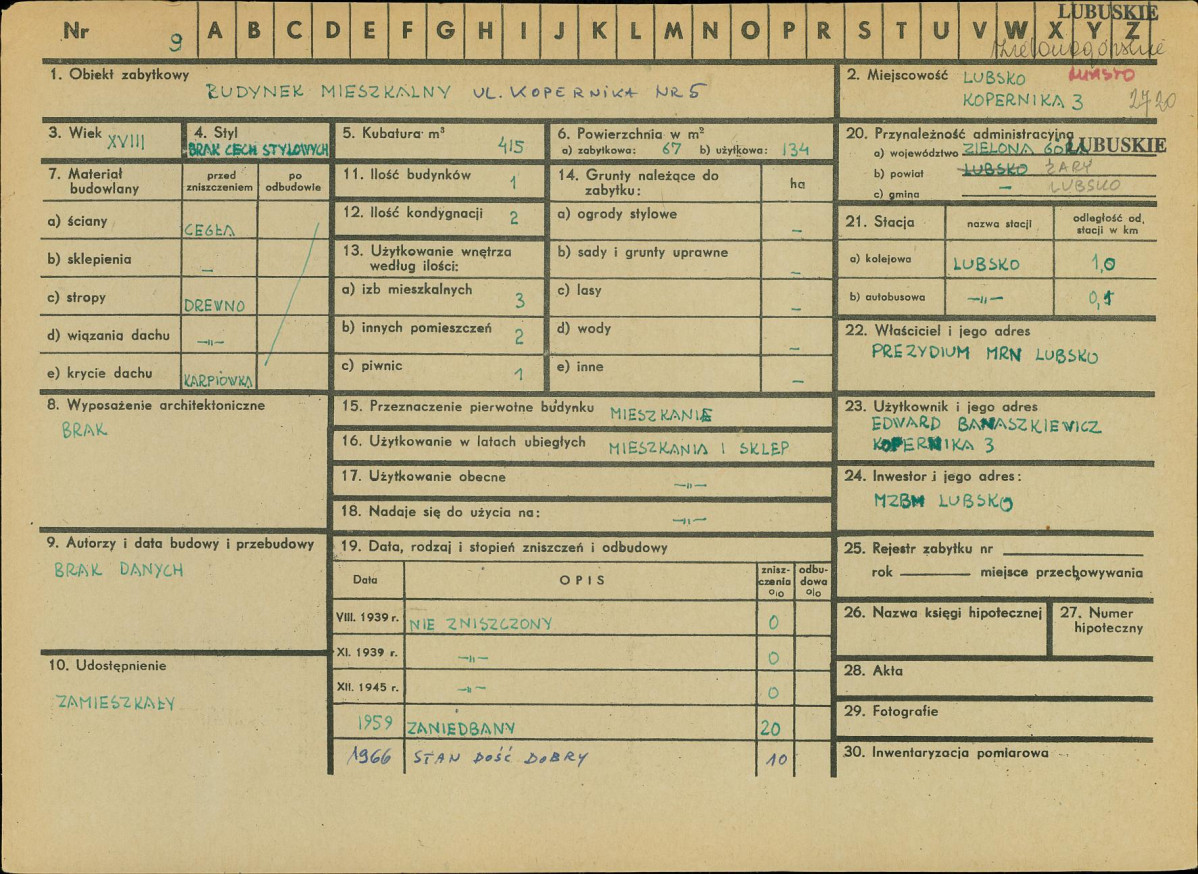 LUBUSKIE
Nr 9 A B C D E F G H I J K L M N O P R S T U V W X Y Z
zielonogórskie
1. Obiekt zabytkowy
BUDYNEK MIESZKALNY UL. KOPERNIKA NR 5
2. Miejscowość LUBSKO MIASTO
KOPERNIKA 3 2720
3. Wiek XVIII
4. Styl
BRAK CECH STYLOWYCH
5. Kubatura m³
415
6. Powierzchnia w m²
a) zabytkowa: 67 b) użytkowa: 134
20. Przynależność administracyjna
LUBUSKIE
a) województwo ZIELONA GÓRA
b) powiat LUBSKO ŻARY
c) gmina — LUBSKO
7. Materiał budowlany
przed zniszczeniem
po odbudowie
a) ściany CEGŁA
b) sklepienia —
c) stropy DREWNO
d) wiązania dachu —„—
e) krycie dachu KARPIÓWKA
11. Ilość budynków 1
12. Ilość kondygnacji 2
13. Użytkowanie wnętrza
według ilości:
a) izb mieszkalnych 3
b) innych pomieszczeń 2
c) piwnic 1
14. Grunty należące do
zabytku: ha
a) ogrody stylowe —
b) sady i grunty uprawne —
c) lasy —
d) wody —
e) inne —
21. Stacja
nazwa stacji
odległość od,
stacji w km
a) kolejowa LUBSKO 1,0
b) autobusowa —„— 0,1
22. Właściciel i jego adres
PREZYDIUM MRN LUBSKO
8. Wyposażenie architektoniczne
BRAK
15. Przeznaczenie pierwotne budynku MIESZKANIE
16. Użytkowanie w latach ubiegłych MIESZKANIA I SKLEP
17. Użytkowanie obecne —„—
18. Nadaje się do użycia na: —„—
23. Użytkownik i jego adres
EDWARD BANASZKIEWICZ
KOPERNIKA 3
24. Inwestor i jego adres:
MZBM LUBSKO
9. Autorzy i data budowy i przebudowy
BRAK DANYCH
19. Data, rodzaj i stopień zniszczeń i odbudowy
Data
OPIS
znisz-
czenia
%
odbu-
dowa
%
VIII. 1939 r. NIE ZNISZCZONY 0
XI. 1939 r. —„— 0
XII. 1945 r. —„— 0
1959 ZANIEDBANY 20
1966 STAN DOŚĆ DOBRY 10
25. Rejestr zabytku nr
rok miejsce przechowywania
26. Nazwa księgi hipotecznej
27. Numer
hipoteczny
10. Udostępnienie
ZAMIESZKAŁY
28. Akta
29. Fotografie
30. Inwentaryzacja pomiarowa